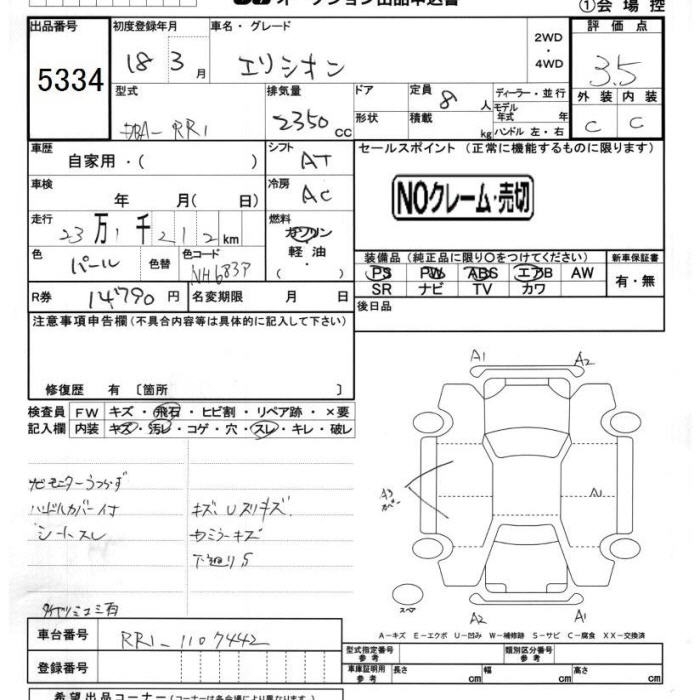 オークション出品申込書
①会場控
出品番号
5334
初度登録年月
18 3 月
車名・グレード
エリシオン
2WD
・
4WD
評価点
3.5
型式
DBA-RR1
排気量
2350 cc
ドア
形状
定員
8 人
積載
kg
ディーラー・並行
モデル
年式 年
ハンドル 左・右
外装 内装
C C
車歴
自家用・( )
シフト
AT
セールスポイント (正常に機能するものに限ります)
NOクレーム・売切
車検
年 月( 日)
冷房
AC
走行
23万1千212km
燃料
ガソリン
軽油・
( )
色
パール
色替
色コード
NH683P
装備品 (純正品に限り○をつけてください)
新車保証書
PS PW ABS エアB AW
SR ナビ TV カワ
有・無
R券
14790 円
名変期限 月 日
後日品
注意事項申告欄 (不具合内容等は具体的に記入して下さい)
修復歴 有 〔箇所 〕
検査員
記入欄
FW キズ・飛石・ヒビ割・リペア跡・×要
内装 キズ・汚レ・コゲ・穴・スレ・キレ・破レ
ナビモニターうつらず
ハンドルカバー付
シートスレ
キズ、Uスリキズ
下廻りS
A1
A2
A3
カバー
スペア
A2
A1
A-キズ E-エクボ U-凹み W-補修跡 S-サビ C-腐食 XX-交換済
車台番号
RR1-1107442
登録番号
型式指定番号
参考
類別区分番号
参考
車庫証明用
参考
長さ cm
幅 cm
高さ cm
希望出品コーナー